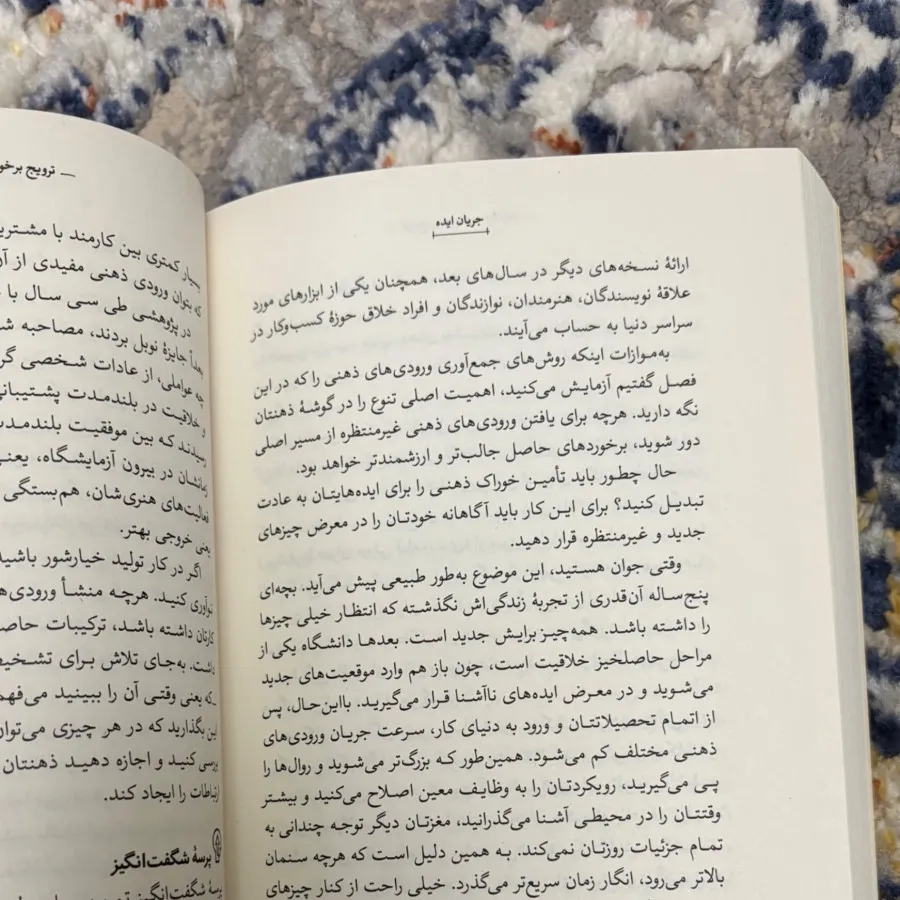 جریان ایده
ارائهٔ نسخه‌های دیگر در سال‌های بعد، همچنان یکی از ابزارهای مورد
علاقهٔ نویسندگان، هنرمندان، نوازندگان و افراد خلاق حوزهٔ کسب‌وکار در
سراسر دنیا به حساب می‌آیند.
به‌موازات اینکه روش‌های جمع‌آوری ورودی‌های ذهنی را که در این
فصل گفتیم آزمایش می‌کنید، اهمیت اصلی تنوع را در گوشهٔ ذهنتان
نگه دارید. هرچه برای یافتن ورودی‌های ذهنی غیرمنتظره از مسیر اصلی
دور شوید، برخوردهای حاصل جالب‌تر و ارزشمندتر خواهد بود.
حال چطور باید تأمین خوراک ذهنی را برای ایده‌هایتان به عادت
تبدیل کنید؟ برای این کار باید آگاهانه خودتان را در معرض چیزهای
جدید و غیرمنتظره قرار دهید.
وقتی جوان هستید، این موضوع به‌طور طبیعی پیش می‌آید. بچه‌ای
پنج‌ساله آن‌قدری از تجربهٔ زندگی‌اش نگذشته که انتظار خیلی چیزها
را داشته باشد. همه‌چیز برایش جدید است. بعدها دانشگاه یکی از
مراحل حاصلخیز خلاقیت است، چون باز هم وارد موقعیت‌های جدید
می‌شوید و در معرض ایده‌های ناآشنا قرار می‌گیرید. بااین‌حال، پس
از اتمام تحصیلاتتان و ورود به دنیای کار، سرعت جریان ورودی‌های
ذهنی مختلف کم می‌شود. همین‌طور که بزرگ‌تر می‌شوید و روال‌ها را
پی می‌گیرید، رویکردتان را به وظایف معین اصلاح می‌کنید و بیشتر
وقتتان را در محیطی آشنا می‌گذرانید، مغزتان دیگر توجه چندانی به
تمام جزئیات روزتان نمی‌کند. به همین دلیل است که هرچه سنمان
بالاتر می‌رود، انگار زمان سریع‌تر می‌گذرد. خیلی راحت از کنار چیزهای
ترویج
بسیار کمتری بین کارمند با
که بتوان ورودی ذهنی مفیدی از
در پژوهشی طی سی سال با
بعداً جایزهٔ نوبل بردند، مصاحبه
چه عواملی، از عادات شخصی
و خلاقیت در بلندمدت
رسیدند که بین موفقیت
زمانشان در بیرون آزمایشگاه،
فعالیت‌های هنری‌شان، هم‌بستگی
یعنی خروجی بهتر.
اگر در کار تولید خیارشور باشید
نوآوری کنید. هرچه منشأ
کارتان داشته باشد، ترکیبات
داشت. به‌جای تلاش برای
که یعنی وقتی آن را ببینید
این بگذارید که در هر چیزی
بررسی کنید و اجازه دهید ذهنتان
ارتباطات را ایجاد کند.
پرسهٔ شگفت‌انگیز
پرسهٔ شگفت‌انگیز